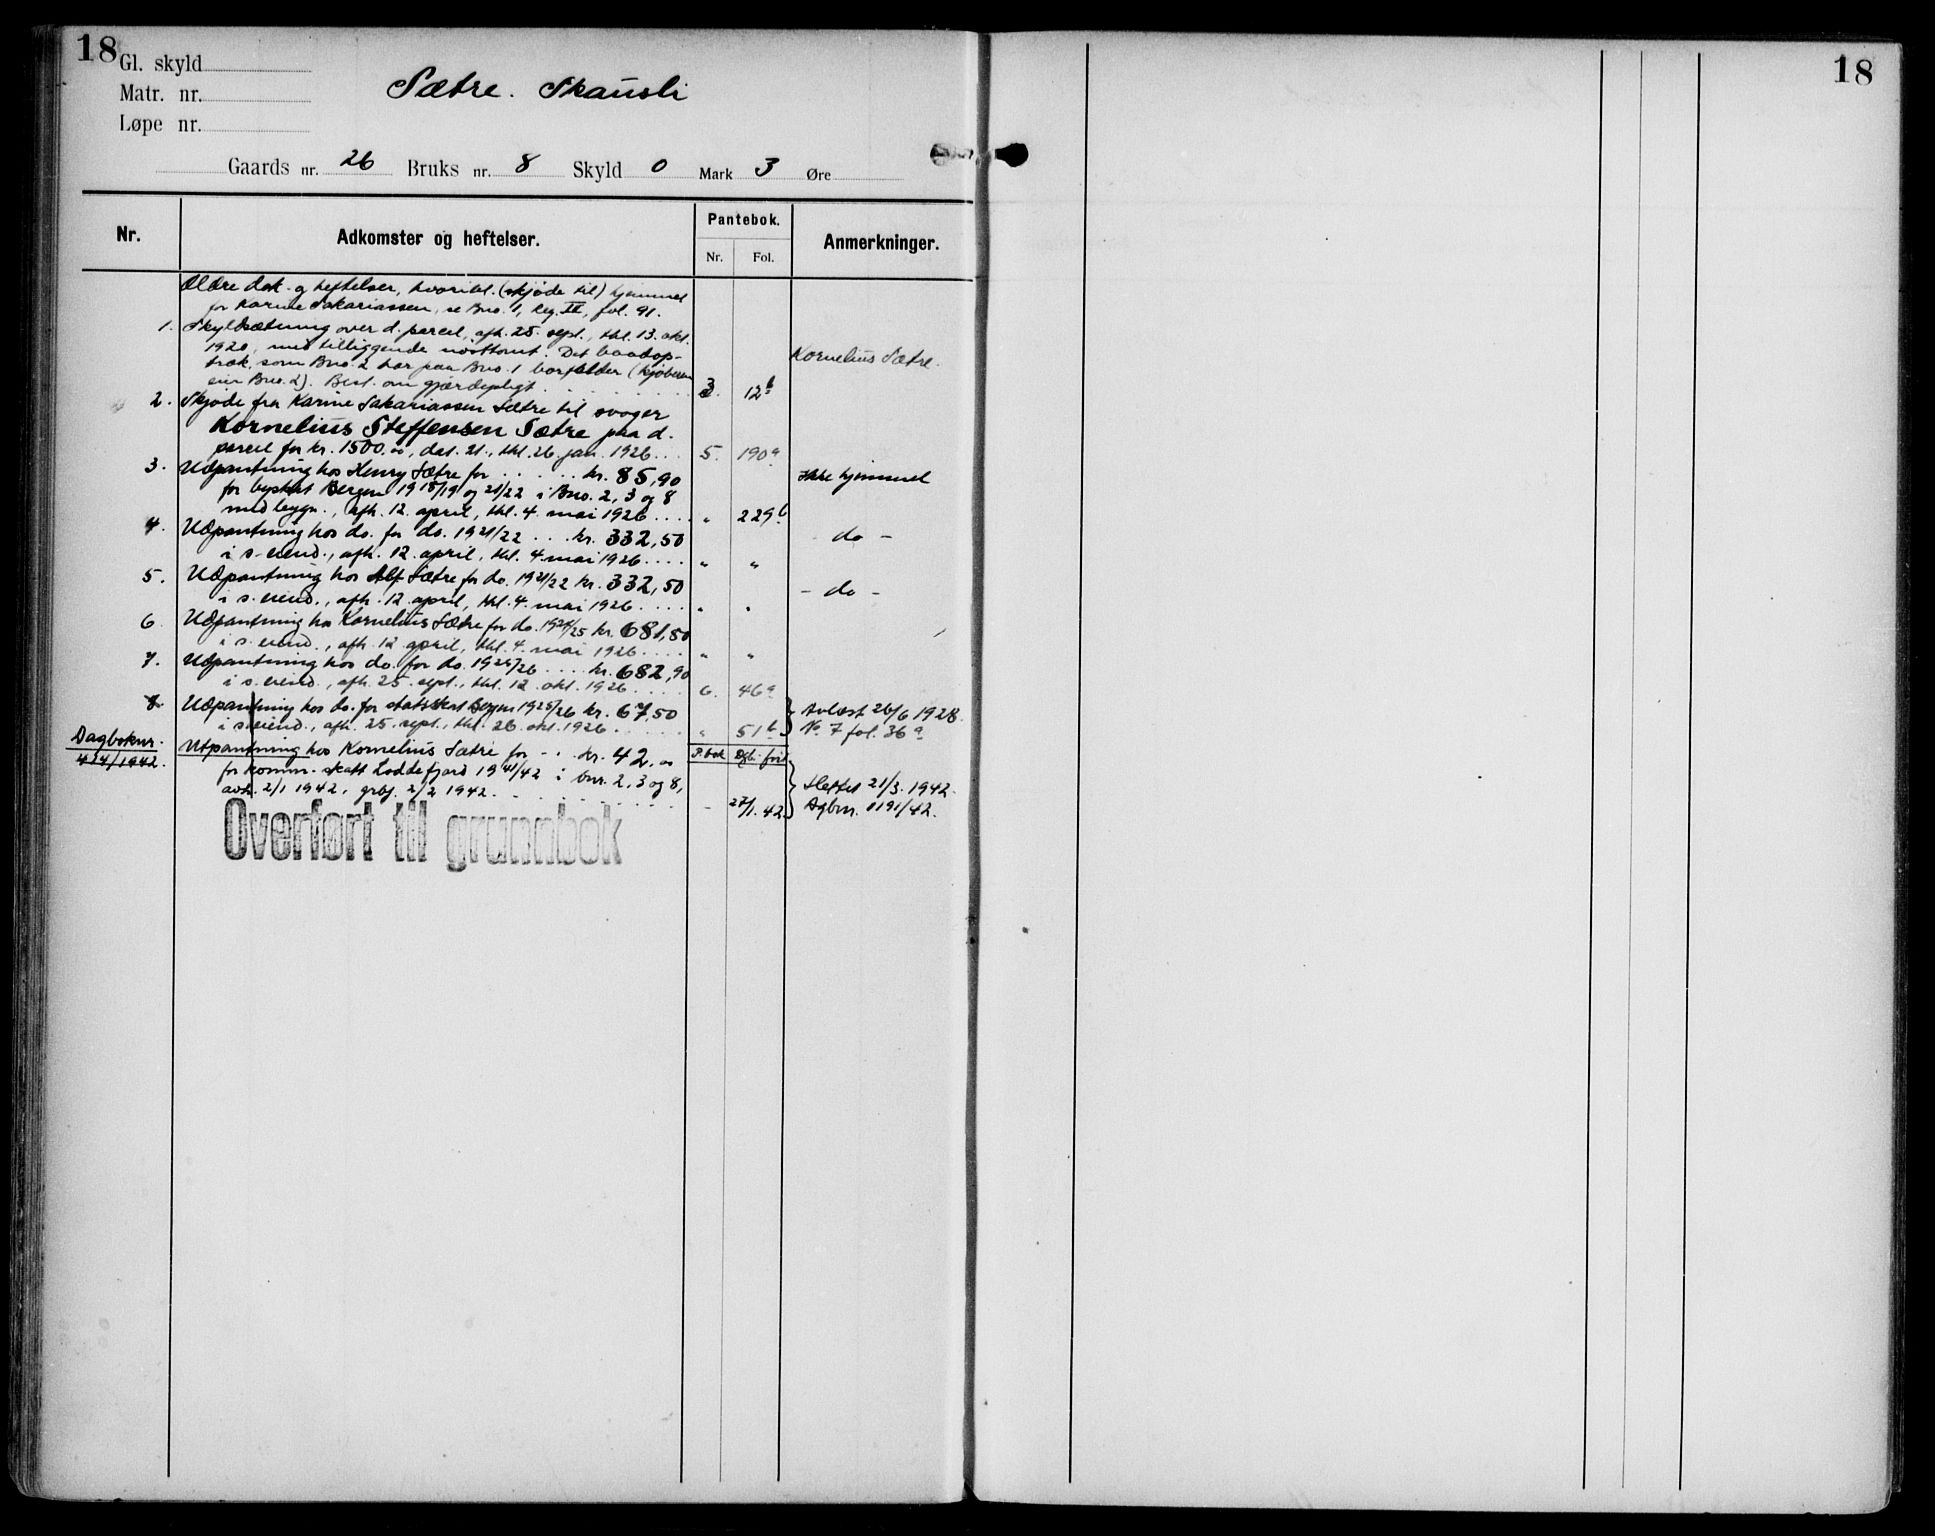 18
Gl. skyld
Matr. nr.
Løpe nr.
Sætre. Skausli
Gaards nr. 26 Bruks nr. 8 Skyld 0 Mark 3 Øre
Nr. Adkomster og heftelser. Pantebok. Anmerkninger.
Nr. Fol.
Ældre dok. og heftelser, hvoribl. (skjøde til) hjemmel
for Karine Sakariassen, se Bno. 1, reg. II, fol. 91.
1. Skyldsætning over d. parcel, afh. 25. sept., thl. 13. okt.
1920, med tilliggende nøsttomt. Det baatop-
træk, som Bno. 2 har paa Bno. 1 borfalder (kjøberen Kornelius Sætre.
eier Bno. 2). Best. om gjærdepligt . . . . 3. 12b
2. Skjøde fra Karine Sakariassen Sætre til svoger
Kornelius Steffensen Sætre paa d.
parcel for kr. 1500.00, dat. 21., thl. 26. jan. 1926 . . . 5. 190a
3. Udpantning hos Henry Sætre for . . . . kr. 85,90 Ikke hjemmel
for byskat Bergen 1918/19 og 21/22 i Bno. 2, 3 og 8
med bygn., afh. 12. april, thl. 4. mai 1926 . . . . " 229b
4. Udpantning hos do. for do. 1921/22 . . . kr. 332,50 do -
i s. eiend., afh. 12. april, thl. 4. mai 1926 . . . . " "
5. Udpantning hos Alf Sætre for do. 1921/22 kr. 332,50 - do -
i s. eiend., afh. 12. april, thl. 4. mai 1926 . . . . " "
6. Udpantning hos Kornelius Sætre for do. 1924/25 kr. 681,50
i s. eiend., afh. 12. april, thl. 4. mai 1926 . . . . " "
7. Udpantning hos do. for do. 1925/26 . . . . kr. 682,90
i s. eiend., afh. 25. sept., thl. 12. okt. 1926 . . . . . 6. 46a
8. Udpantning hos do. for statsskat Bergen 1925/26 kr. 67,50 Avlæst 26/6 1928
i s. eiend., afh. 25. sept., thl. 26. okt. 1926 . . . . . " 51b No. 7 fol. 36a
Dagboknr. Utpantning hos Kornelius Sætre for - . . kr. 42.00 P.bok Dgb. før
414/1942. for komm. skatt Loddefjord 1941/42 i bnr. 2, 3 og 8, Slettet 21/3. 1942.
avh. 2/1 1942, grbf. 2/2 1942. . . . . . - 27/1. 42 Dgbnr. 1191/42.
Overført til grunnbok
18